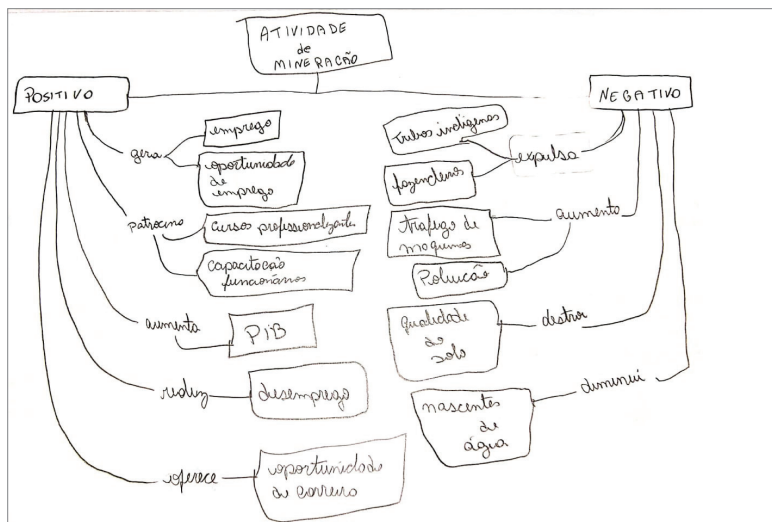 ATIVIDADE
de
MINERAÇÃO
POSITIVO
gera
emprego
oportunidade
de
emprego
patrocina
cursos profissionalizantes
capacitação
funcionários
aumenta
PIB
reduz
desemprego
oferece
oportunidade
de carreira
NEGATIVO
expulsa
tribos indígenas
fazendeiros
aumenta
trafego de
maquinas
Poluição
destroi
qualidade
do
solo
diminui
nascentes
de
água